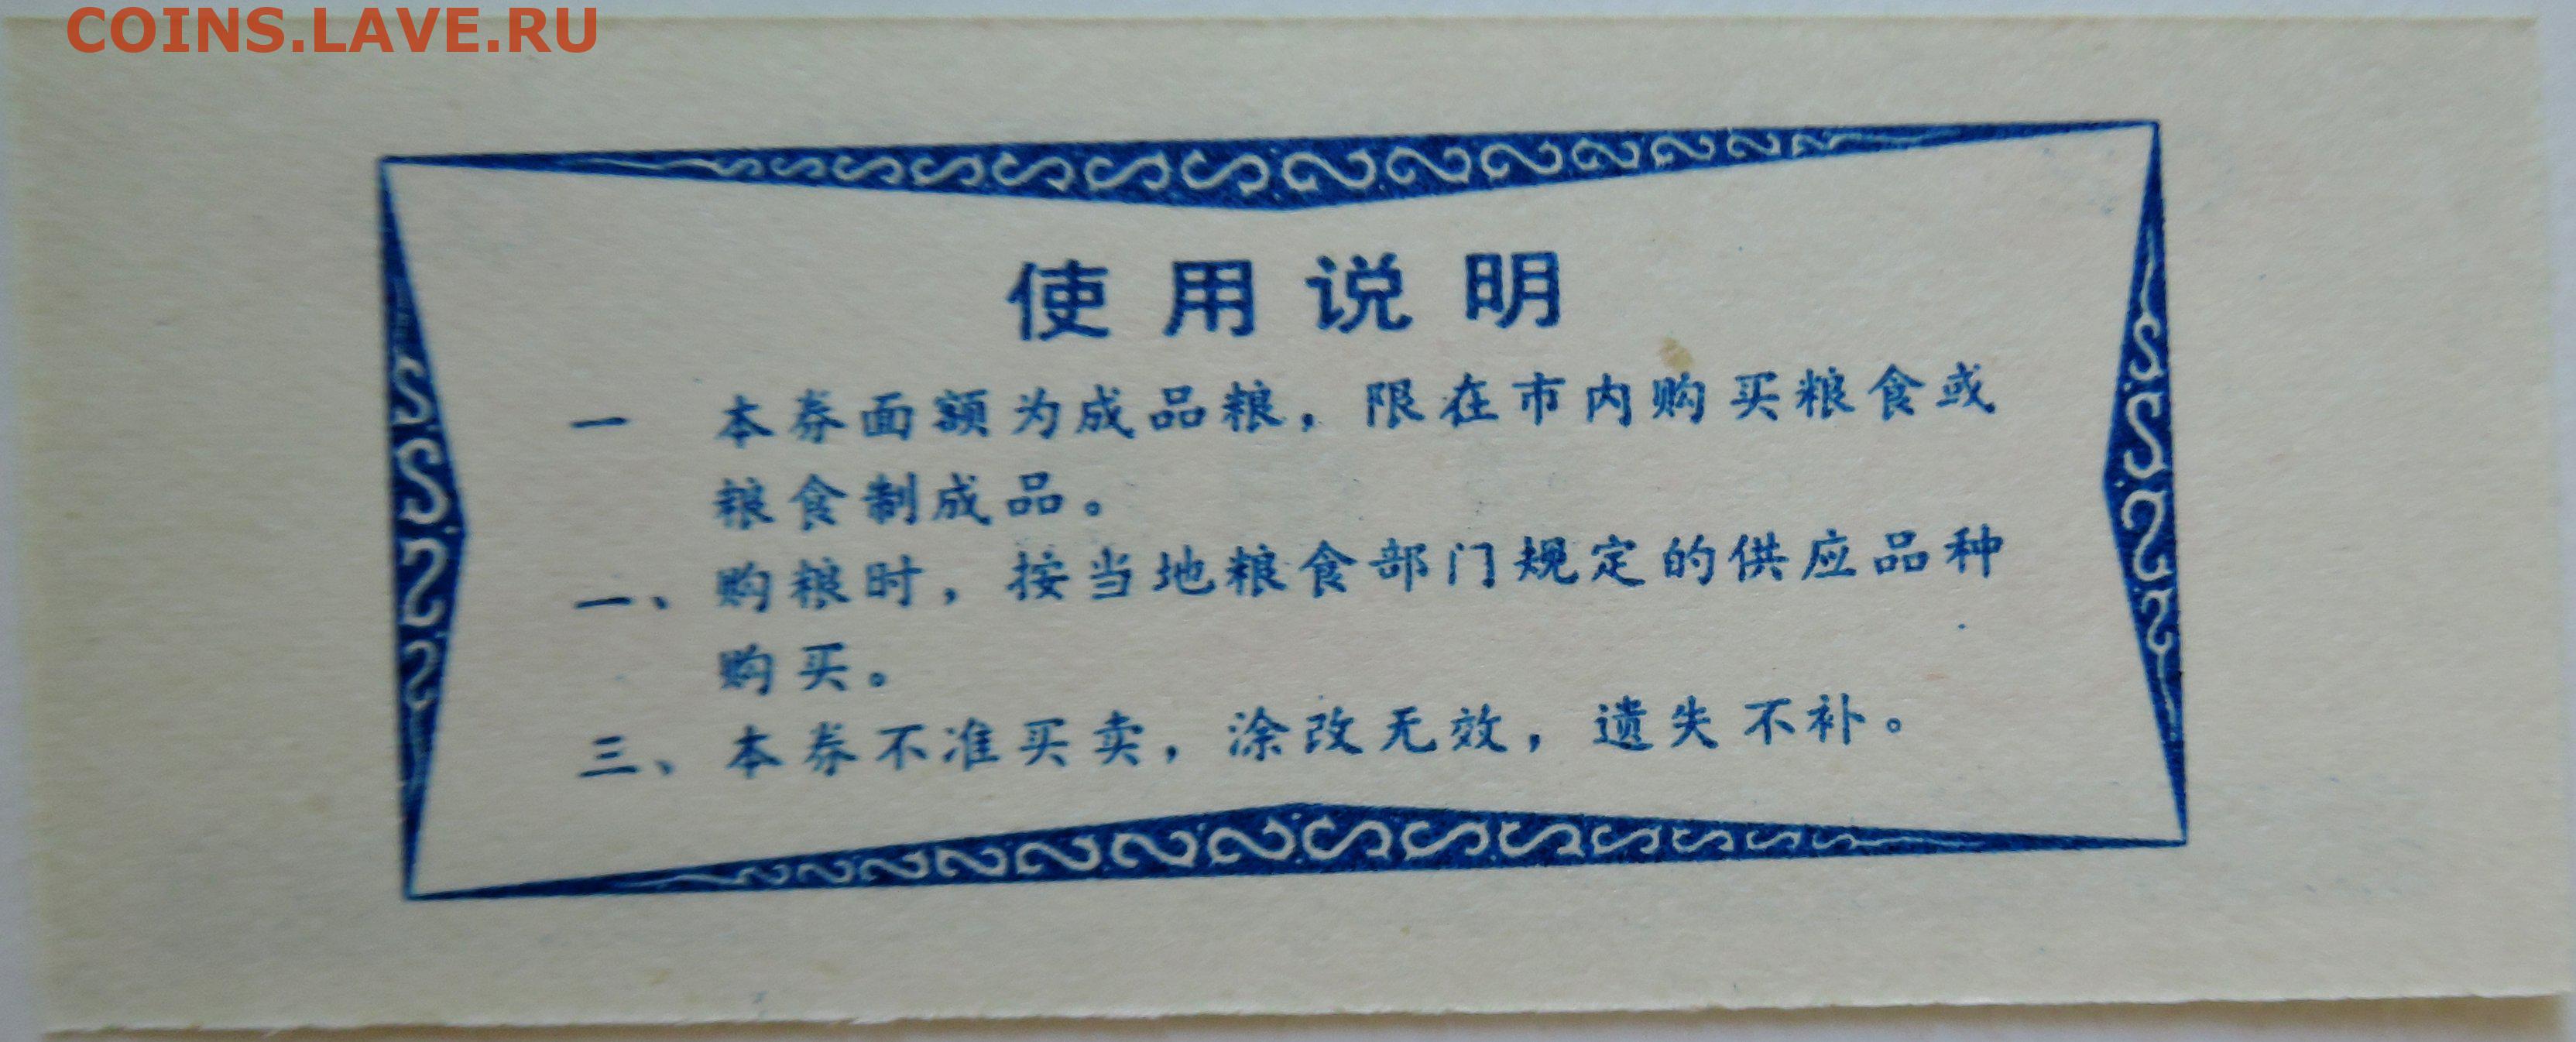 COINS.LAVE.RU
使用说明
一 本券面额为成品粮，限在市内购买粮食或
粮食制成品。
一、购粮时，按当地粮食部门规定的供应品种
购买。
三、本券不准买卖，涂改无效，遗失不补。